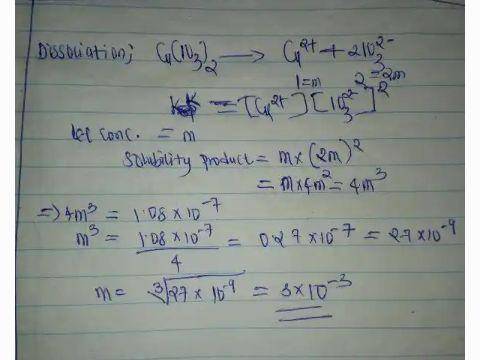 Dissociation; Cu(IO₃)₂ → Cu²⁺ + 2IO₃²⁻
1=m 2=2m
= [Cu²⁺][IO₃²⁻]²
let conc. = m
Solubility product = m×(2m)²
= m×4m² = 4m³
⇒ 4m³ = 1.08×10⁻⁷
m³ = 1.08×10⁻⁷/4 = 0.27×10⁻⁷ = 27×10⁻⁹
m = ∛27×10⁻⁹ = 3×10⁻³